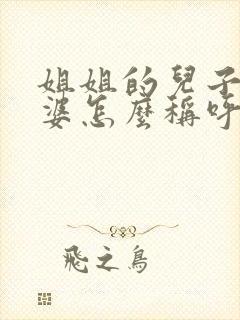 姐姐的兒子
婆怎麼稱呼
飛之鳥